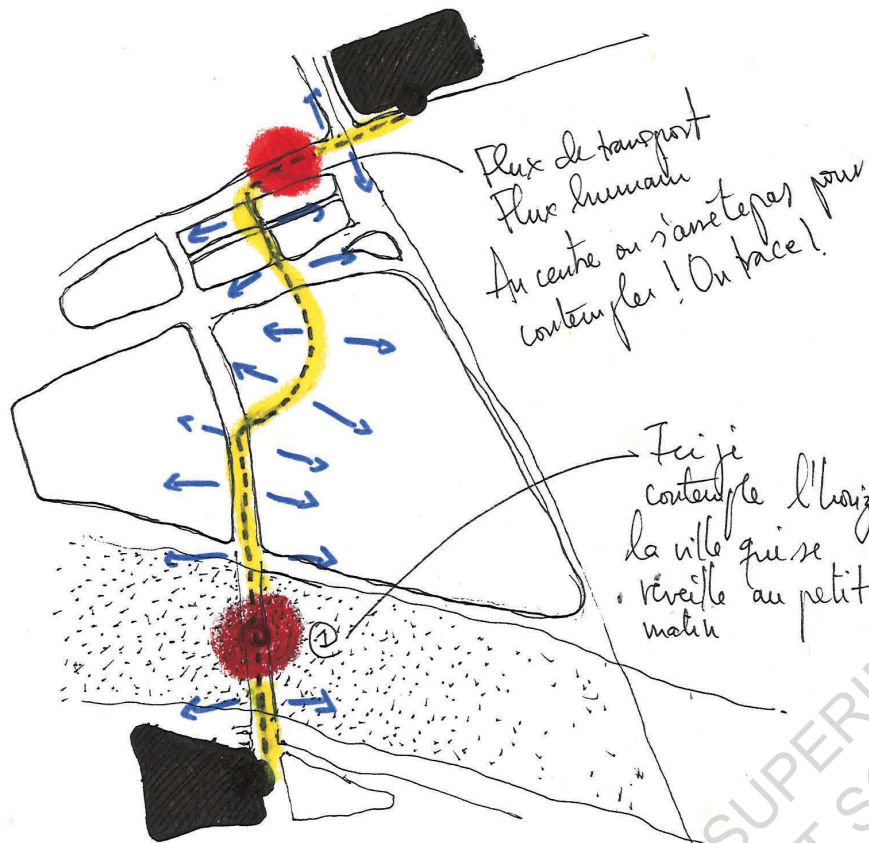 Flux de transport
Flux humain
Au centre on s'arrête pas pour
contempler ! On trace !
Ici je
contemple l'horiz
la ville qui se
réveille au petit
matin
1
SUPERI
T SC